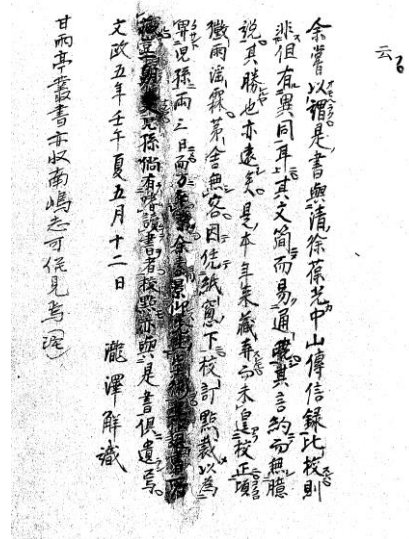 云
余嘗以謂是書與清徐葆光中山傳信錄比校則
非但有異同耳其文简而易通曉其言約而無臆
說其勝也亦遠矣是本年來藏弆而未遑校正頃
黴雨淫霖茅舍無客因凭紙窻下校訂點裁以為
畀児孫兩三日而
児孫倘有嗜讀書者校點亦與是書俱遺焉
文政五年壬午夏五月十二日
瀧澤解識
甘雨亭叢書亦收南嶋志可併見焉